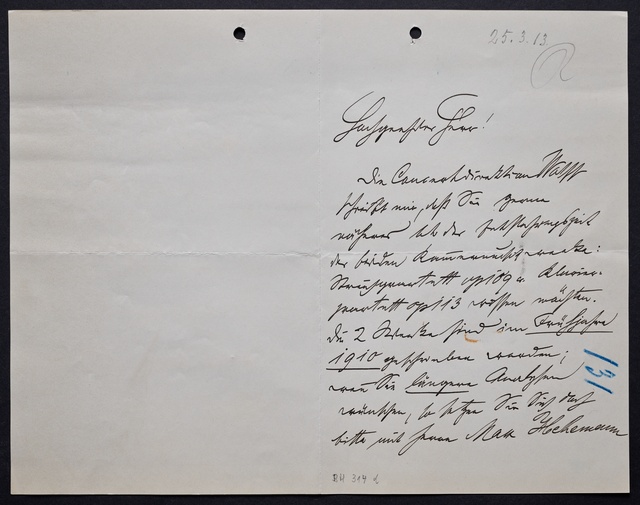 25.3.13.
Hochgeehrter Herr!
Die Concertdirektion Wolff
schreibt mir, daß Sie gerne
näheres btr. der Entstehungszeit
der beiden Kammermusikwerke:
Streichquartett op 109 u. Klavier-
quartett op 113 wissen möchten.
Die 2 Werke sind im Frühjahre
1910 geschrieben worden;
wenn Sie längere Analysen
wünschen, so setzen Sie Sich doch
bitte mit Herrn Max Hehemann
131
RH 314